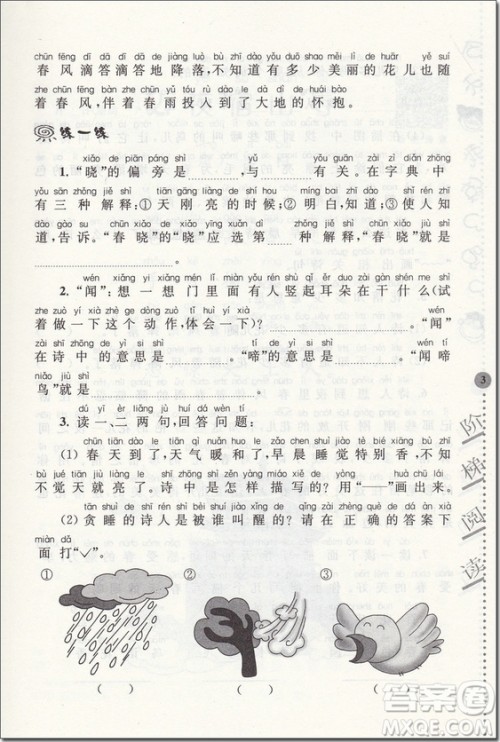 chūn fēng dī dā dī dā de jiàng luò bù zhī dào yǒu duō shao měi lì de huār yě suí
春风滴答滴答地降落,不知道有多少美丽的花儿也随
zhe chūn fēng bàn zhe chūn yǔ tóu rù dào le dà dì de huái bào
着春风,伴着春雨投入到了大地的怀抱。
练一练
xiǎo de piān páng shì yǔ yǒu guān zài zì diǎn zhōng
1.“晓”的偏旁是 ,与 有关。在字典中
yǒu sān zhǒng jiě shì tiān gāng liàng de shí hou míng bai zhī dào shǐ rén zhī
有三种解释:①天刚亮的时候;②明白,知道;③使人知
dào gào su chūn xiǎo de xiǎo yīng xuǎn dì zhǒng jiě shì chūn xiǎo jiù shì
道,告诉。“春晓”的“晓”应选第 种解释,“春晓”就是
。
wén xiǎng yi xiǎng mén lǐ miàn yǒu rén shù qǐ ěr duo zài gàn shén me shì
2.“闻”:想一想门里面有人竖起耳朵在干什么(试
zhe zuò yí xià zhè ge dòng zuò tǐ huì yí xià wén
着做一下这个动作,体会一下)? 。“闻”
zài shī zhōng de yì si shì tí de yì si shì wén tí
在诗中的意思是 。“啼”的意思是 。“闻啼
niǎo jiù shì
鸟”就是 。
dú yī èr liǎng jù huí dá wèn tí
3.读一、二两句,回答问题:
chūn tiān dào le tiān qì nuǎn hé le zǎo chén shuì jiào tè bié xiāng bù zhī
(1)春天到了,天气暖和了,早晨睡觉特别香,不知
bù jué tiān jiù liàng le shī zhōng zěn yàng miáo xiě de yòng huà chū lái
不觉天就亮了。诗中怎样描写的,用“ ”画出来。
tān shuì de shī rén shì bèi shuí jiào xǐng de zài zhèng què de dá àn xià
(2)贪睡的诗人是被谁叫醒的?在正确的答案下
miàn dǎ
面打“✓”。
① ② ③
( ) ( ) ( )
3
阶梯阅读
答案圈
MXQE.COM